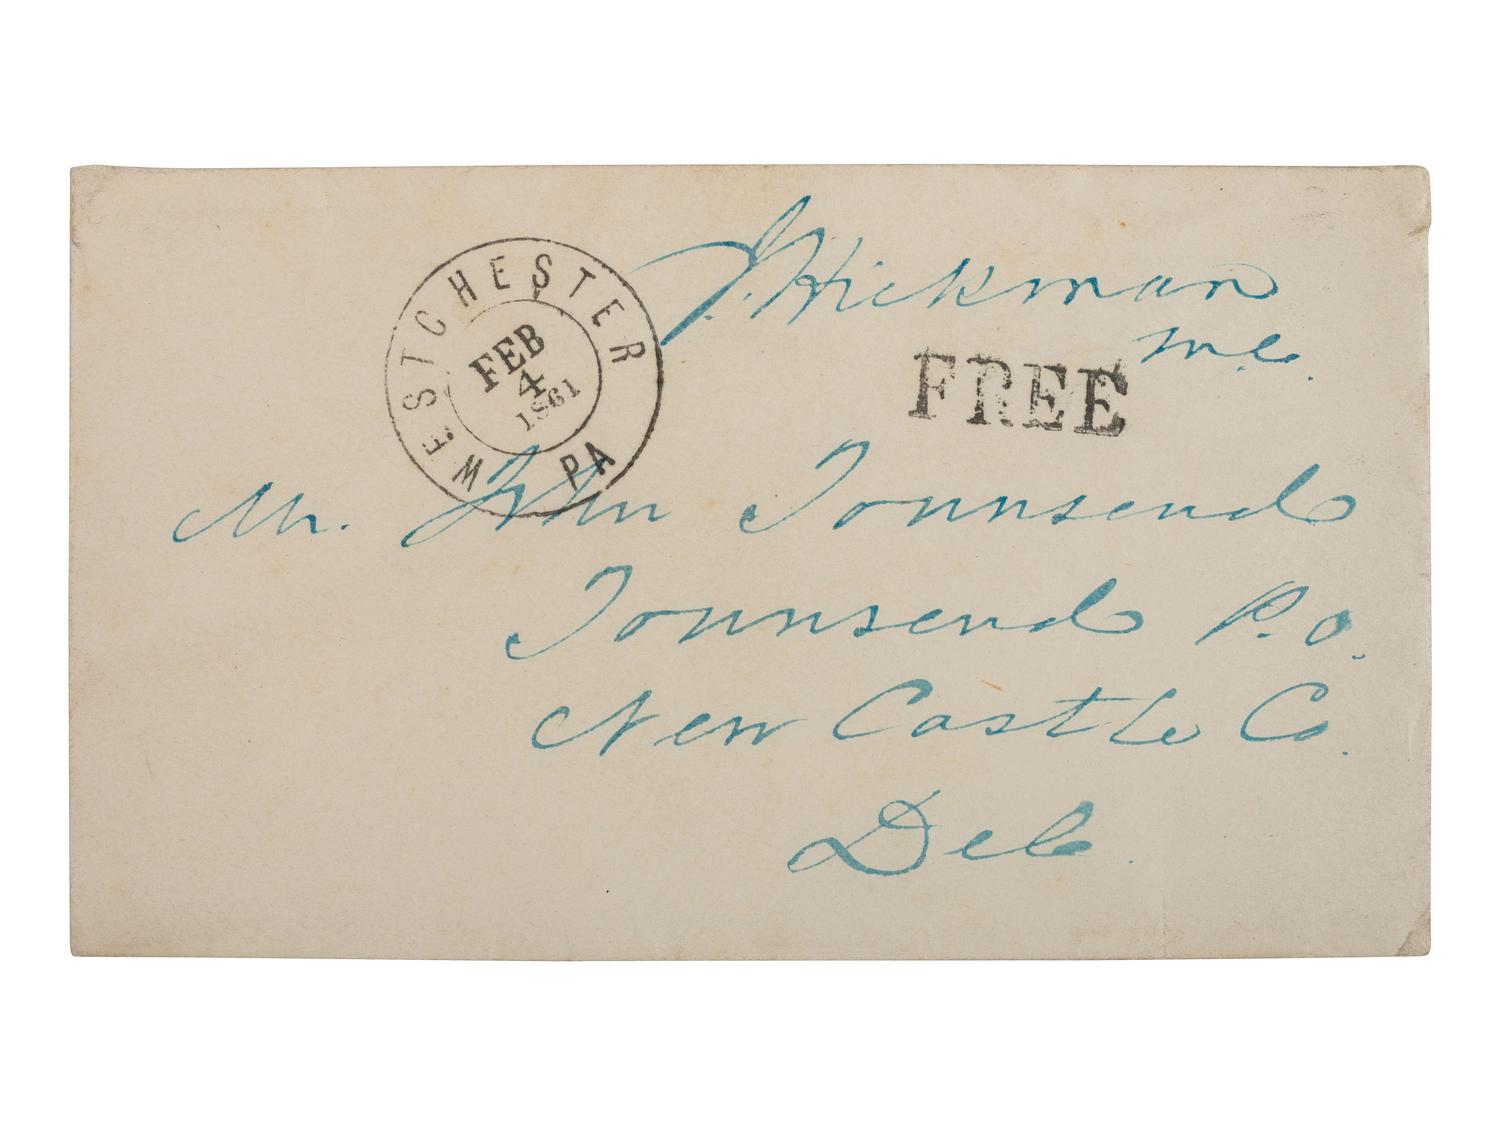 J. Hickman
M.C.
WEST CHESTER PA
FEB
4
1861
FREE
Mr. John Townsend
Townsend P.O.
New Castle Co.
Del.